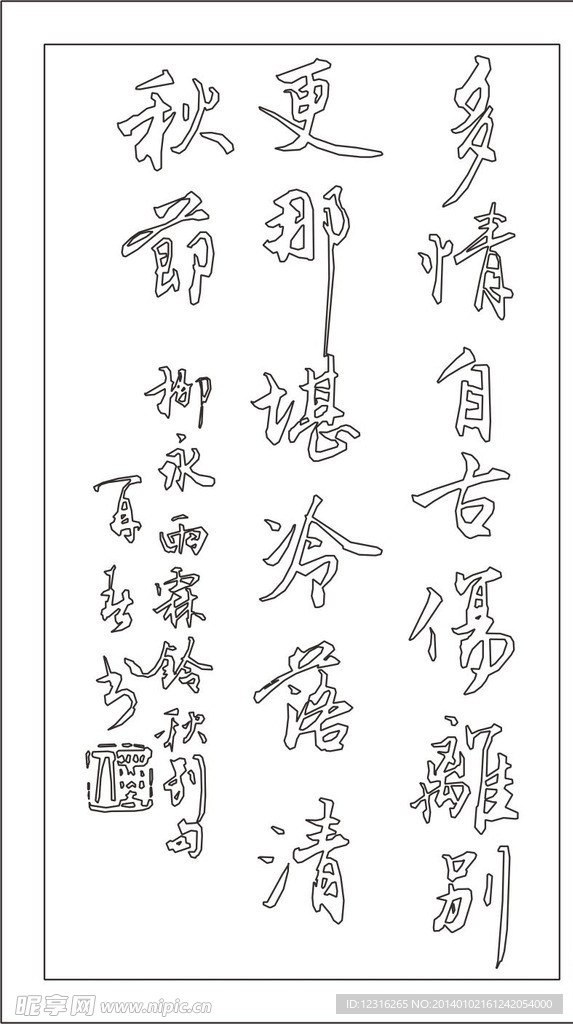 多情自古傷離别
更那堪冷落清
秋節
柳永雨霖鈴秋别句
昵享网 www.nipic.cn
ID:12316265 NO:20140102161242054000